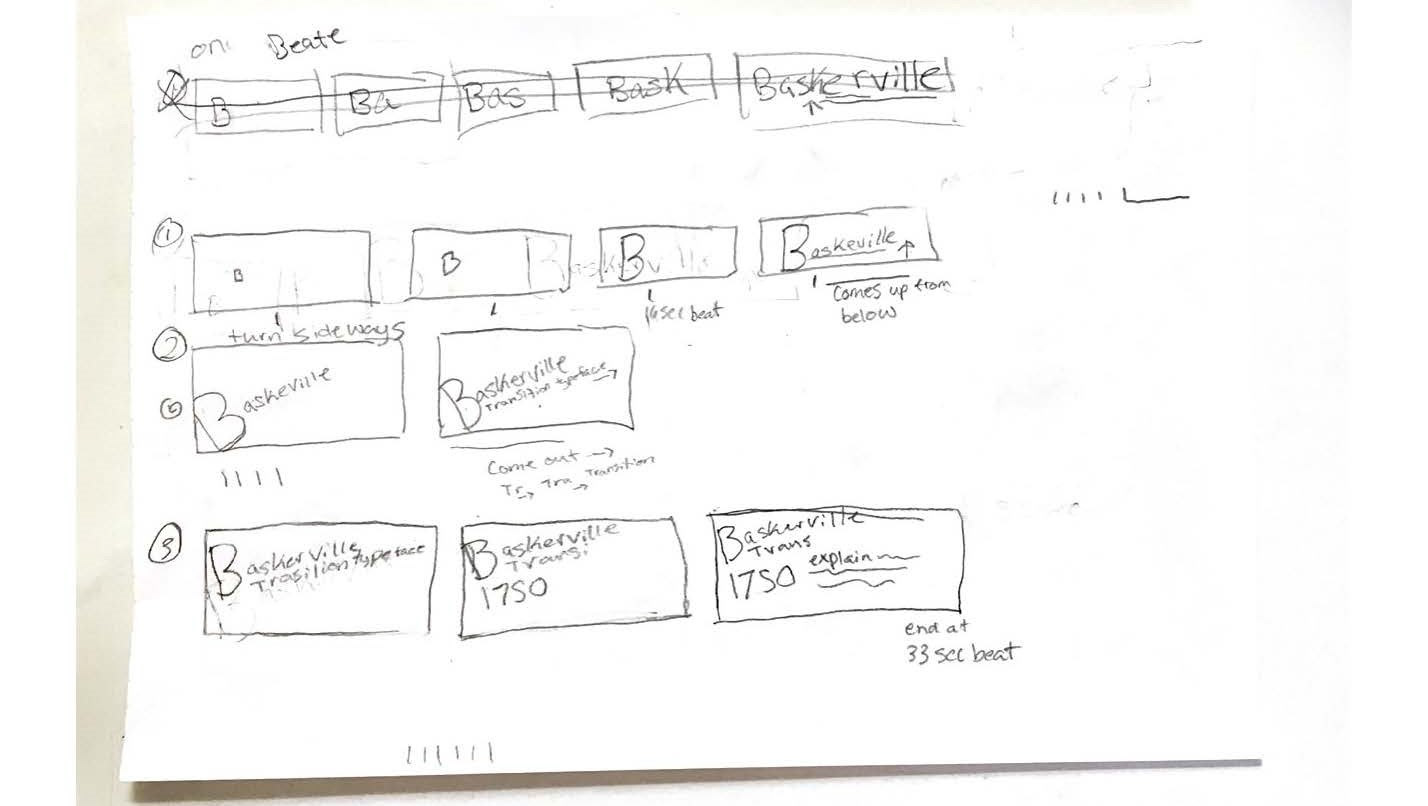 on Beate
B Ba Bas Bask Baskerville
1
B B B Baskeville
Comes up from
below
sec beat
2 turn sideways
Baskeville Baskerville
Transition typeface
Come out
Tr Tra Transition
3
Baskerville Baskerville Baskerville
Trasilion typeface Transi Trans
1750 1750 explain
end at
33 sec beat